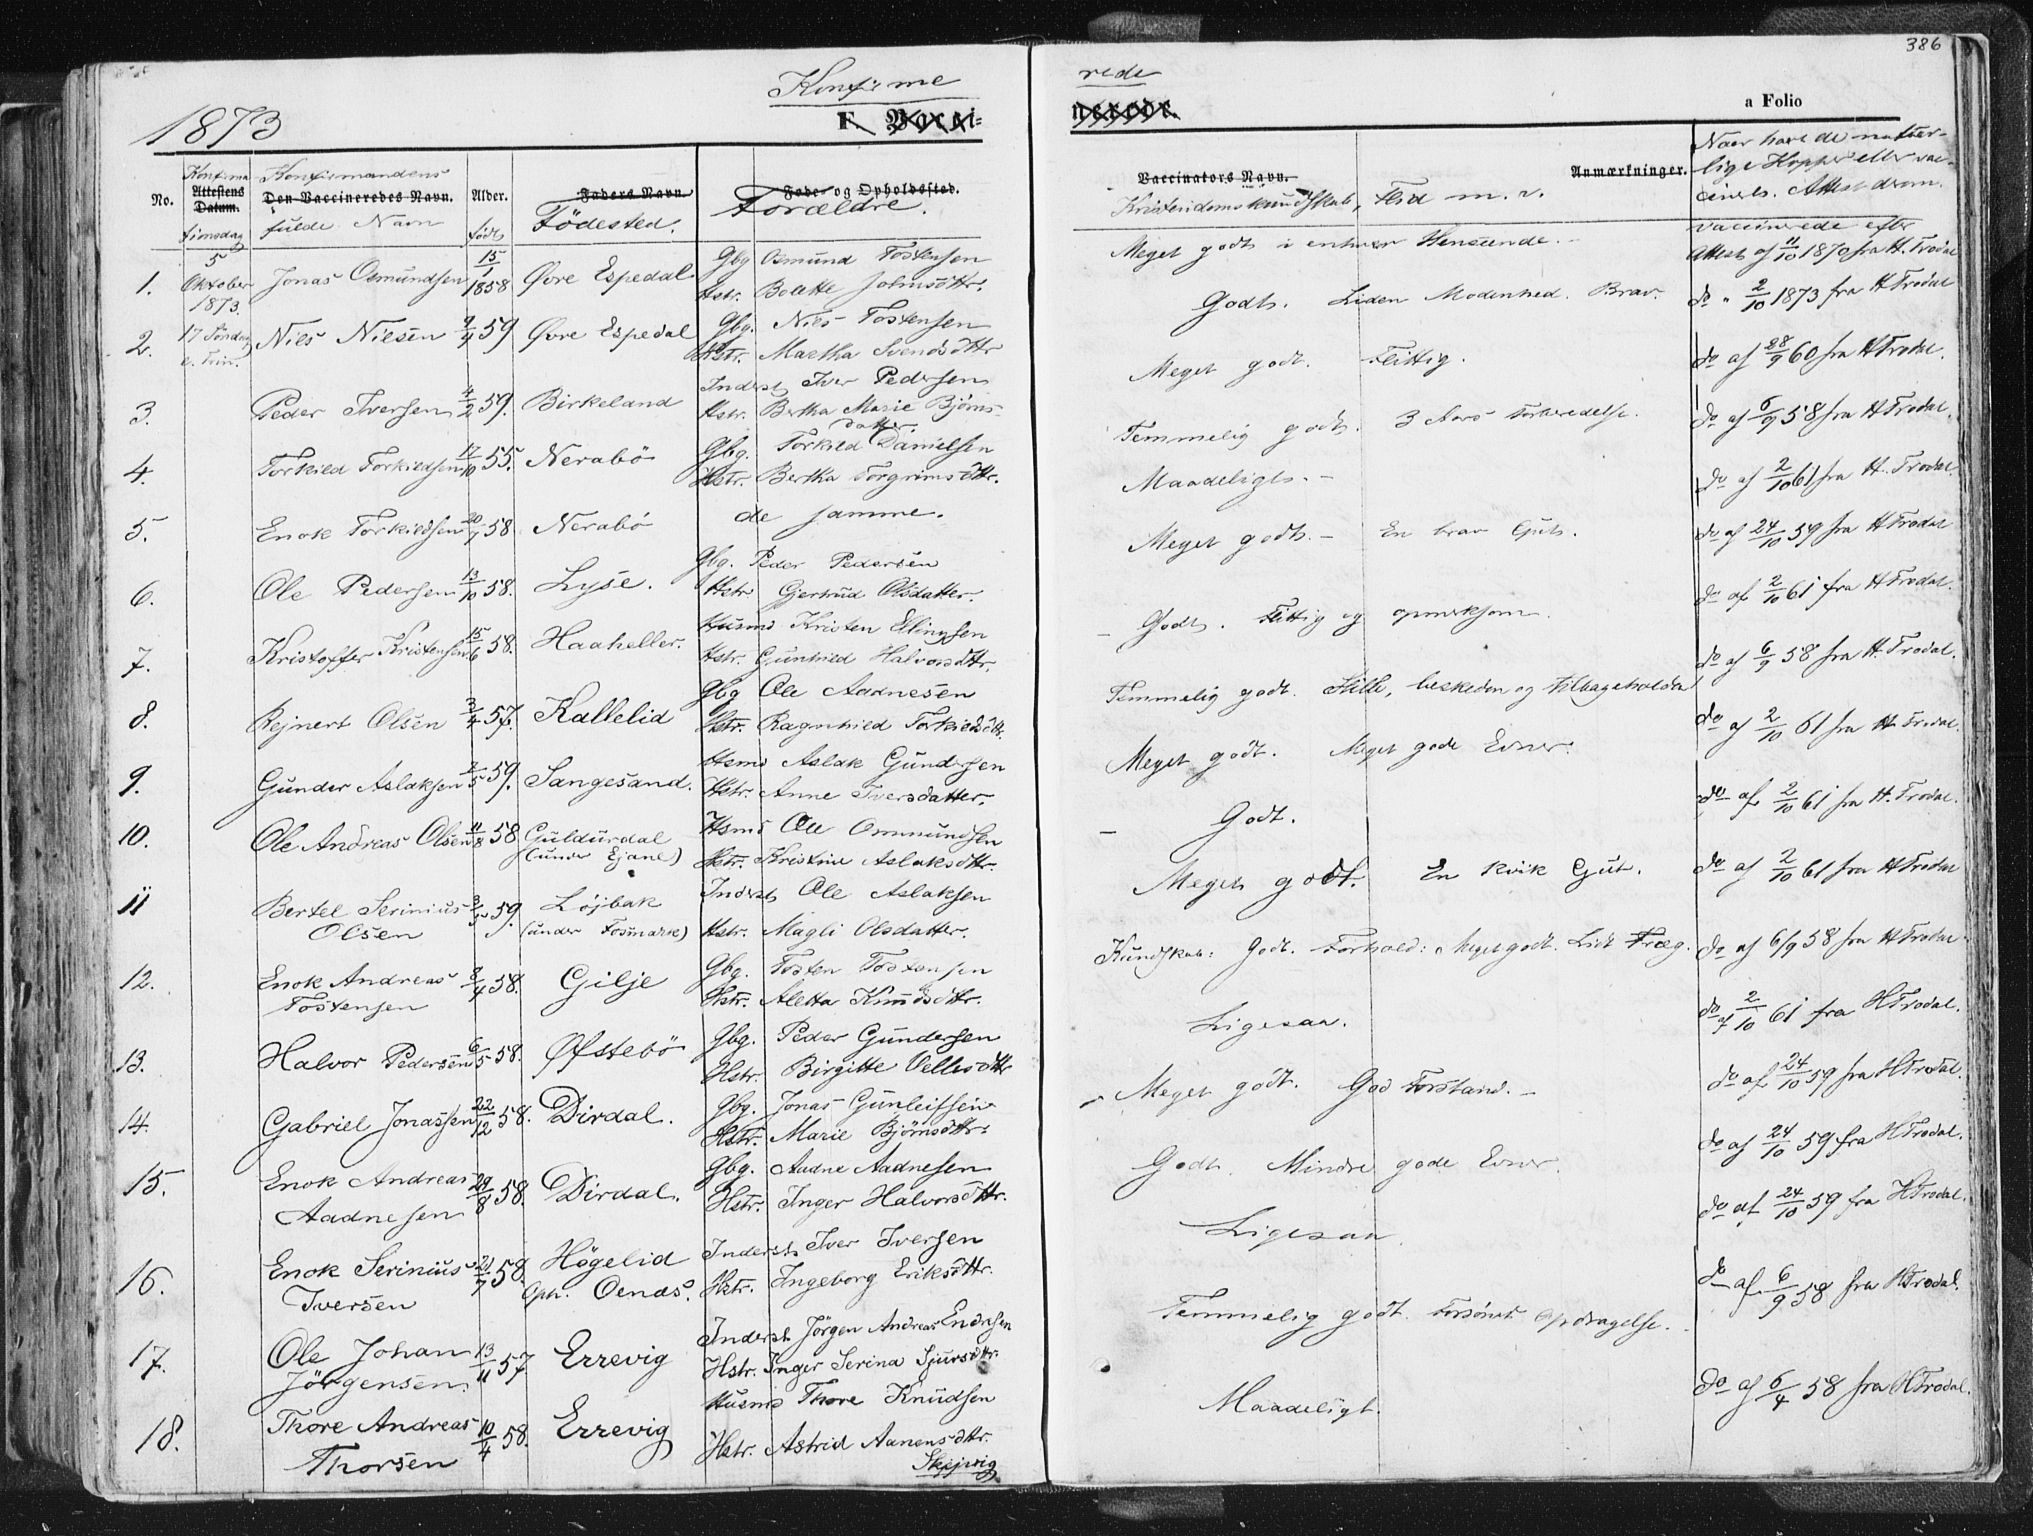 386
Konfirme rede
1873
F. Vacci- nerede.
a Folio
No. Attestens Datum. Den Vaccineredes Navn. Alder. Faders Navn. Føde- og Opholdssted.
Konfirma tionsdag Konfirmandens fulde Navn født Födested. Forældre.
Vaccinators Navn. Anmærkninger.
Kristendomskundskab, Flid m. v.
Naar havt de natur-
lige Kopper eller vac-
cinerts. Attest derom.
vaccinerede efter
1. 5 Oktober 1873. Jonas Osmundsen 15/1 1858 Øvre Espedal Gbg Osmund Tostensen
Hstr. Bolette Johnsdttr.
Meget godt i enhver Henseende. Attest af 11/10 1870 fra H. Trodal
2. 17 Söndag e. Trin. Niels Nielsen 9/4 59 Øvre Espedal Gbg. Niels Tostensen
Hstr. Martha Svendsdttr
Godt. Liden Modenhed. Brav. do " 2/10 1873 fra H Trodal
3. Peder Iversen 4/2 59. Birkeland Inderst Iver Pedersen
Hstr. Bertha Marie Bjørns-
datter.
Meget godt. Flittig. do af 28/9 60 fra H Trodal.
4. Torkild Torkildsen 17/10 55. Nerabö Gbg. Torkild Danielsen
Hstr. Bertha Torgrimsdttr.
Temmelig godt. 3 Aars Forberedelse. do af 6/9 58 fra H Trodal.
5. Enok Torkildsen 20/7 58. Nerabö de samme.
Maadeligt. do af 2/10 61 fra H. Trodal.
6. Ole Pedersen 13/10 58. Lyse. Gbg. Peder Pedersen
Hstr Gjertrud Olsdatter.
Meget godt. En brav Gut. do af 24/10 59 fra H Trodal
7. Kristoffer Kristensen 15/6 58. Haaheller. Husmd Kristen Ellingsen
Hstr. Gunhild Halvorsdttr.
Godt. Flittig og opmerksom. do af 2/10 61 fra H Trodal.
8. Rejnert Olsen 3/4 57. Kallelid Gbg Ole Aadnesen
Hstr. Ragnhild Torkildsdttr.
Temmelig godt. Stille, beskeden og tilbageholden do af 6/9 58 fra H. Trodal.
9. Gunder Aslaksen 2/5 59. Sangesand. Hsmd Aslak Gundersen
Hstr. Anne Iversdatter.
Meget godt. Meget gode Evner. do af 2/10 61 fra H. Trodal.
10. Ole Andreas Olsen 11/8 58 Guldurdal
(under Ejane) Hsmd Ole Ommundsen
Hstr. Kristine Aslaksdttr.
Godt. do af 2/10 61 fra H. Trodal.
11 Bertel Serinius
Olsen 3/5 59. Löjbak
(under Fosmark) Inderst Ole Aslaksen
Hstr. Magli Olsdatter.
Meget godt. En kvik Gut. do af 2/10 61 fra H Trodal
12. Enok Andreas
Tostensen 8/4 58. Gilje Gbg. Tosten Tostensen
Hstr. Aletta Knudsdttr.
Kundskab: Godt. Forhold: Meget godt. Lidt Træg. do af 6/9 58 fra H Trodal
13. Halvor Pedersen 6/5 58. Øfstebö Gbg. Peder Gundersen
Hstr. Birgitte Vellesdttr
Ligesaa. do af 2/10 61 fra H Trodal.
14. Gabriel Jonassen 22/12 58. Dirdal. Gbg. Jonas Gunleifsen
Hstr. Marie Bjørnsdttr.
Meget godt. God Forstand. do af 24/10 59 fra H Trodal.
15. Enok Andreas
Aadnesen 29/8 58. Dirdal. Gbg. Aadne Aadnesen
Hstr. Inger Halvorsdttr.
Godt. Mindre gode Evner. do af 24/10 59 fra H Trodal.
16. Enok Serinius
Iversen 21/7 58. Högelid
Oph. Oends. Inderst Iver Iversen
Hstr. Ingeborg Eriksdttr.
Ligesaa do af 24/10 59 fra H Trodal.
17. Ole Johan
Jörgensen. 13/11 57 Errevig Inderst Jörgen Andreas Endresen
Hstr. Inger Serina Sjursdttr.
Temmelig godt. Forsømt Opdragelse. do af 6/9 58 fra H Trodal.
18. Thore Andreas
Thorsen 10/4 58. Errevig Husmd Thore Knudsen
Hstr. Astrid Aanensdttr.
Skejvig
Maadeligt. do af 6/4 58 fra H Trodal.